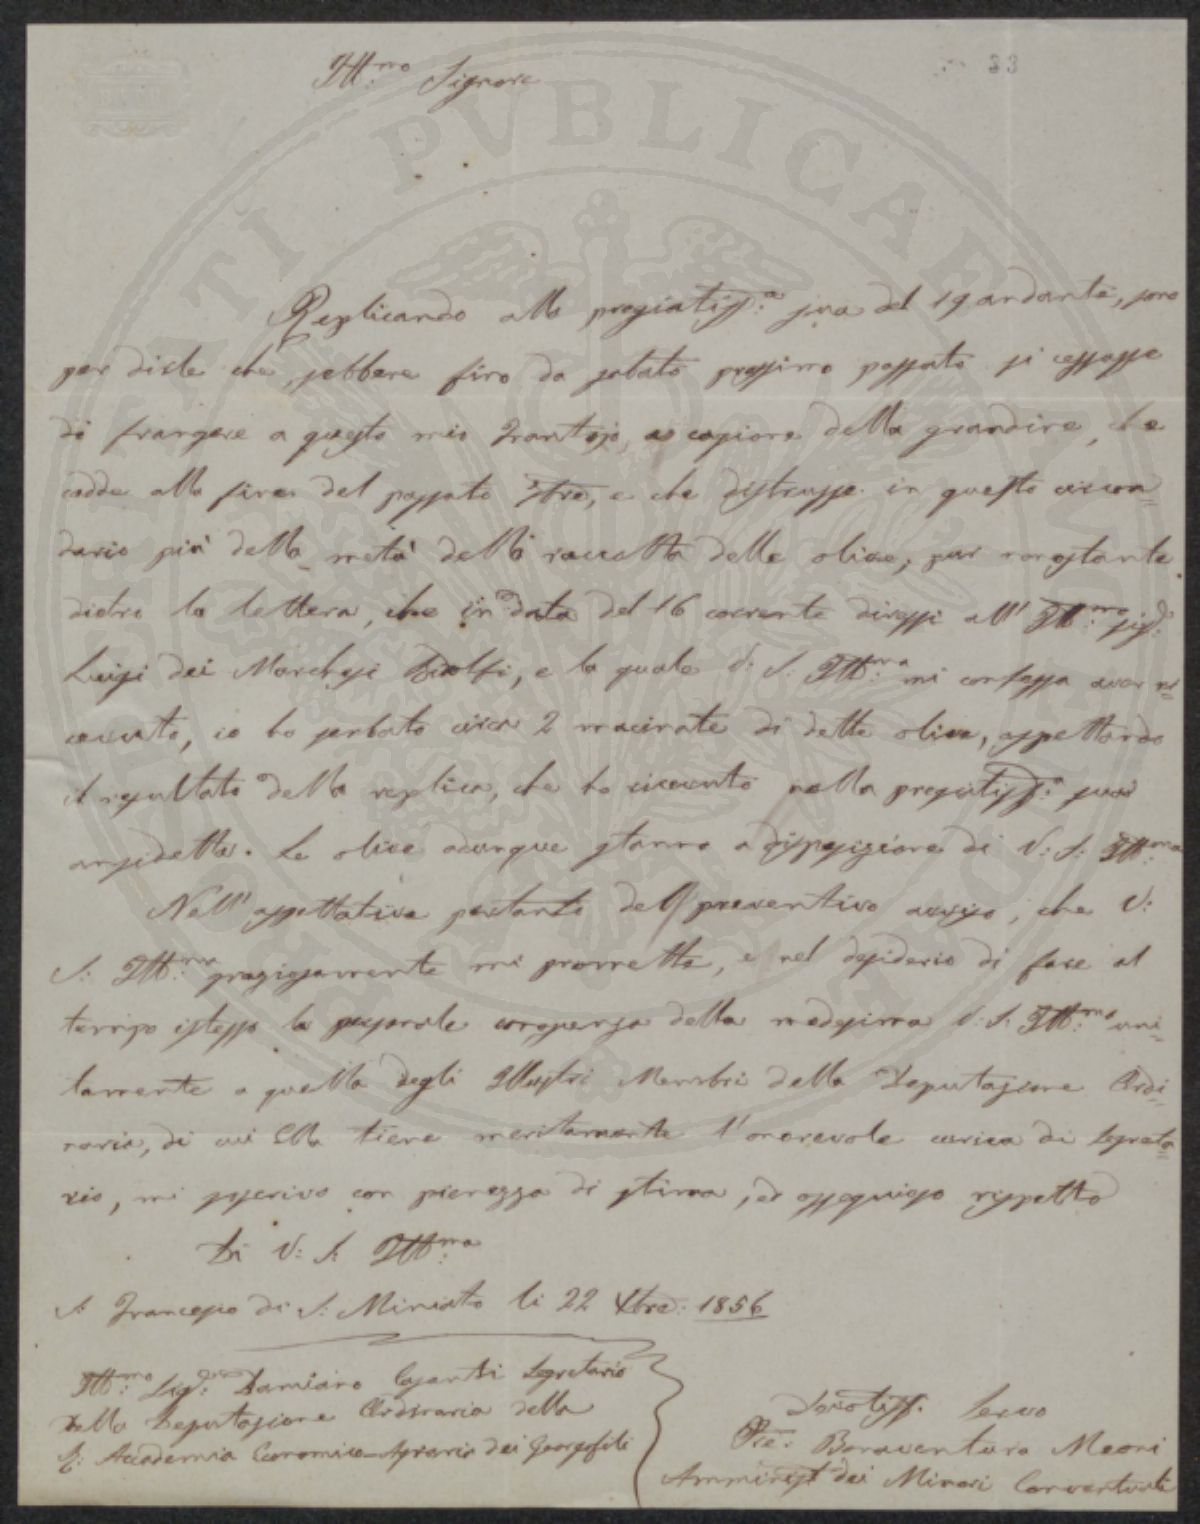 33
Ill:mo Signore
Replicando alla pregiatiss:a sua del 19 andante, sono
per dirle che, sebbene fino da sabato prossimo passato si cessasse
di frangere a questo mio Frantojo, a cagione della grandine, che
cadde alla fine del passato 7bre, e che distrusse in questo circon=
dario più della metà della raccolta delle olive, pur nonostante
dietro la lettera, che in data del 16 corrente diressi all' Ill:mo Sig:r
Luigi dei Marchesi Ridolfi, e la quale V: S: Ill:ma mi confessa aver ri=
cevuto, io ho serbato circa 2 macinate di dette olive, aspettando
il resultato della replica, che ho ricevuto nella pregiatiss:a sua
ansidetta. Le olive adunque stanno a disposizione di V: S: Ill:ma
Nell' aspettativa pertanto dell preventivo avviso, che V:
S: Ill:ma graziosamente mi promette, e nel desiderio di fare al
tempo istesso la personale conoscenza della medesima V: S. Ill:ma uni=
tamente a quella degli Illustri Membri della Deputazione Ordi=
naria, di cui Ella tiene meritamente l'onorevole carica di Segreta=
rio, mi soscrivo con pienezza di stima, ed ossequioso rispetto
Di V: S: Ill:ma
S. Francesco di S: Miniato li 22 Xbre: 1856
Ill:mo Sig:r Damiano Casanti Segretario
della Deputazione Ordinaria della
R: Accademia Economico-Agraria dei Georgofili
Devotiss. Servo
Bonaventura Meoni
Amminist dei Minori Conventuali
PVBLICAE